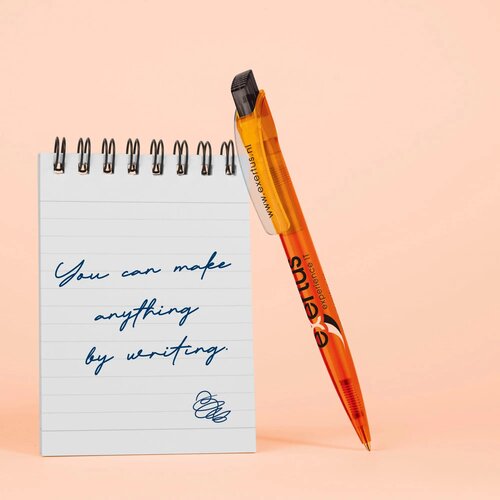 You can make
anything
by writing.
www.exertus.nl
exertus
experience it